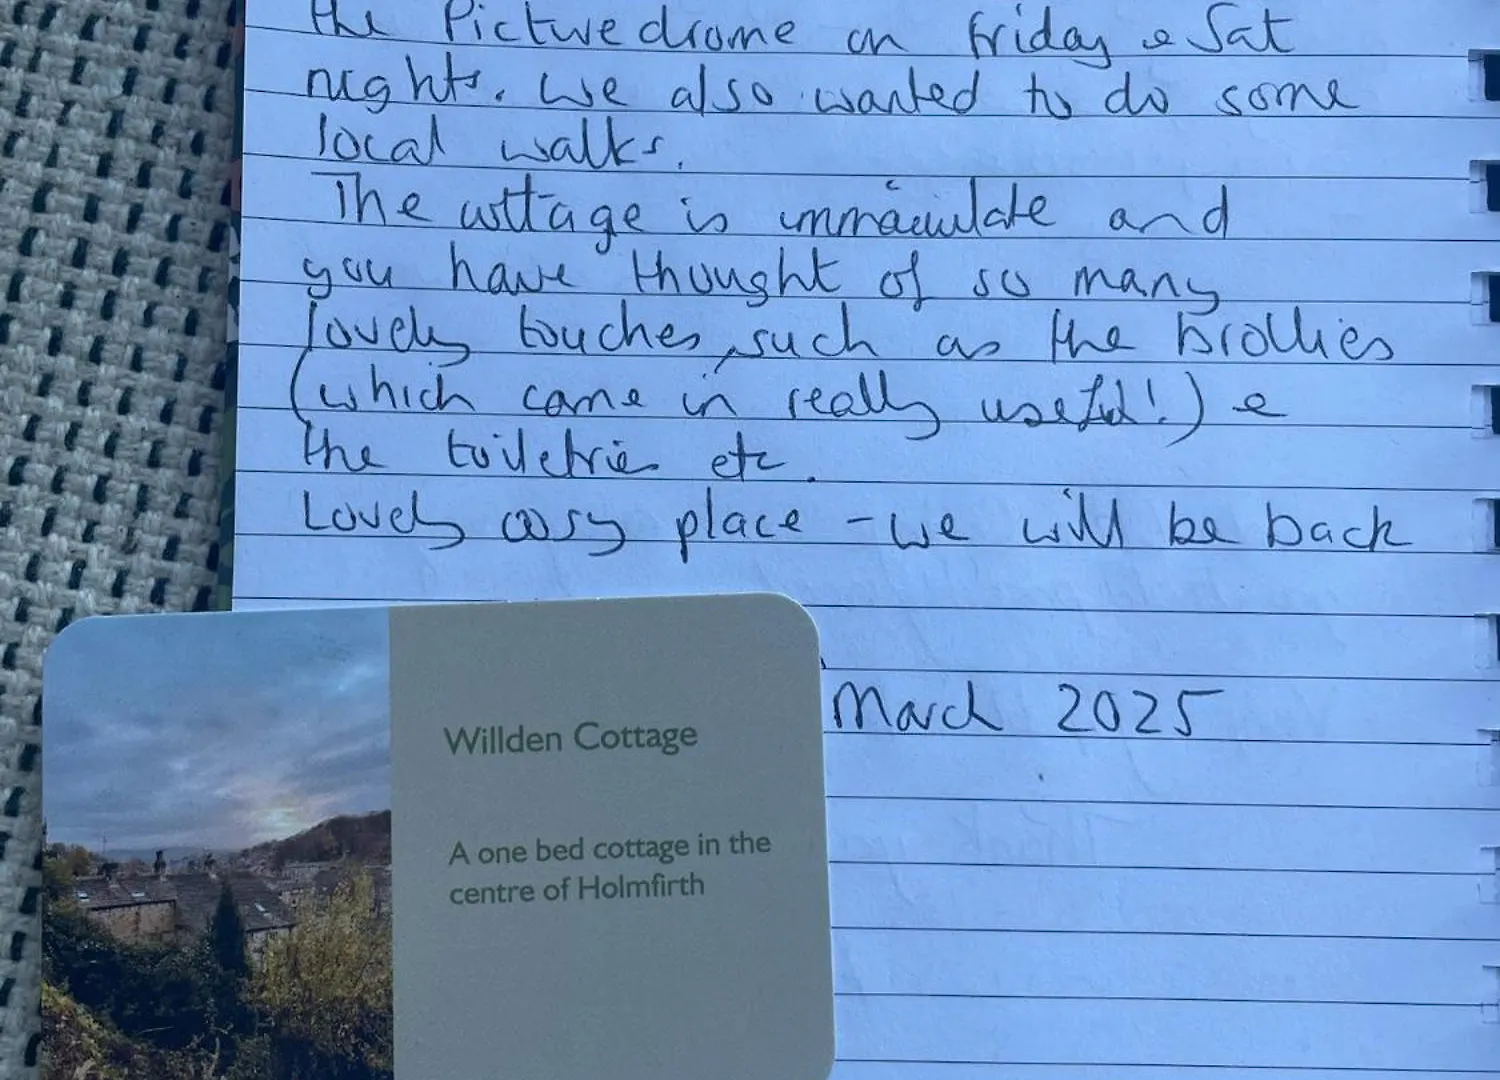 the Picturedrome on Friday & Sat
nights. We also wanted to do some
local walks.
The cottage is immaculate and
you have thought of so many
lovely touches, such as the brollies
(which came in really useful!) &
the toiletries etc.
Lovely cosy place - we will be back
March 2025
Willden Cottage
A one bed cottage in the
centre of Holmfirth